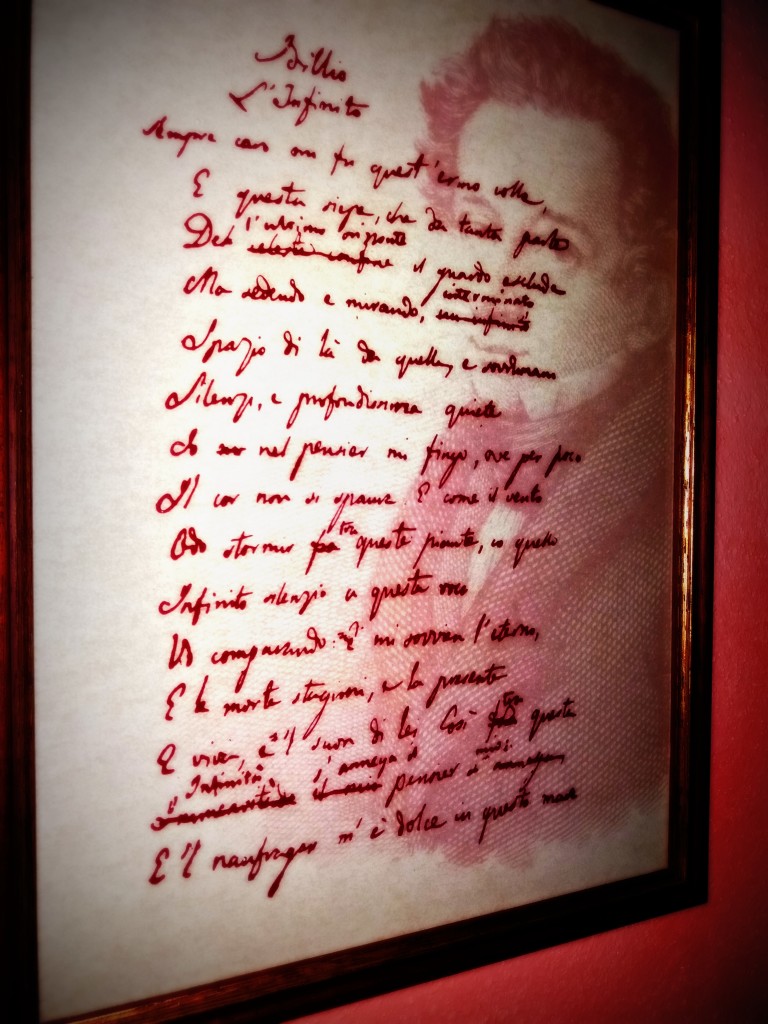 Idillio
L'Infinito
Sempre caro mi fu quest'ermo colle,
E questa siepe, che da tanta parte
l'ultimo orizzonte
Del celeste confine il guardo esclude
interminato
Ma sedendo e mirando, un infinito
Spazio di là da quella, e sovrumani
Silenzi, e profondissima quiete
Io nel pensier mi fingo, ove per poco
Il cor non si spaura. E come il vento
tra
Odo stormir fra queste piante, io quello
Infinito silenzio a questa voce
Vo comparando: e mi sovvien l'eterno,
E le morte stagioni, e la presente
tra
E viva, e 'l suon di lei. Così fra questa
Infinità s'annega il mio
Immensità il mio pensier s'annega,
E 'l naufragar m'è dolce in questo mare